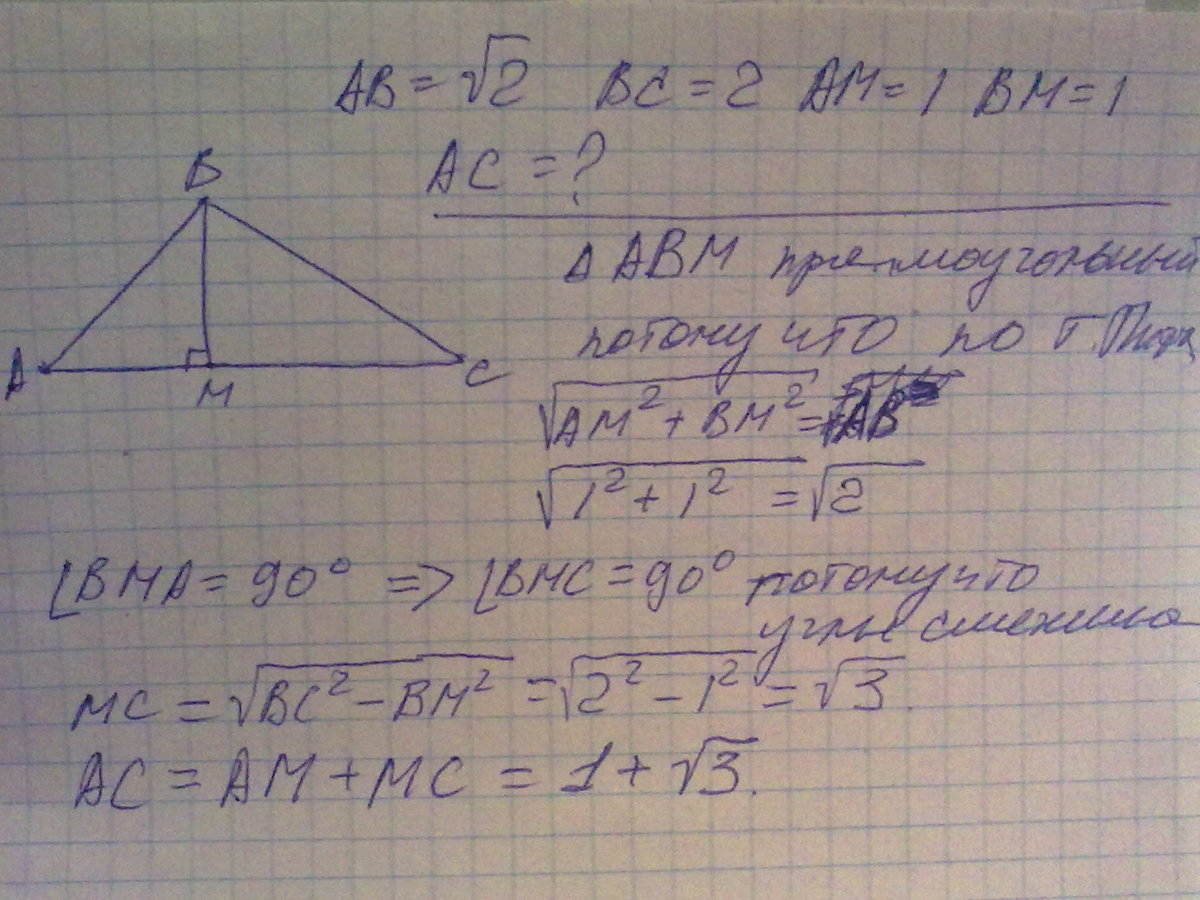 AB = √2 BC = 2 AM = 1 BM = 1
AC = ?
B
A
M
C
Δ ABM прямоугольный
потому что по т.
√AM² + BM² = AB
√1² + 1² = √2
∠BMA = 90° => ∠BMC = 90° потому что
углы
MC = √BC² - BM² = √2² - 1² = √3.
AC = AM + MC = 1 + √3.